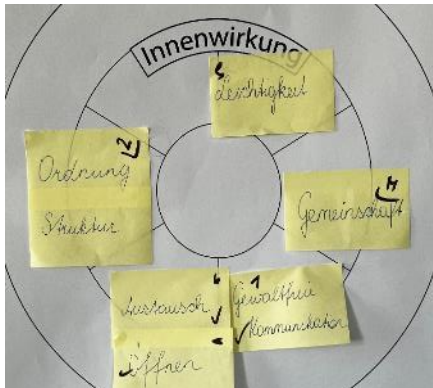 Innenwirkung
Leichtigkeit
Ordnung
Struktur
Gemeinschaft
Austausch
Öffnen
Gewaltfreie
Kommunikation